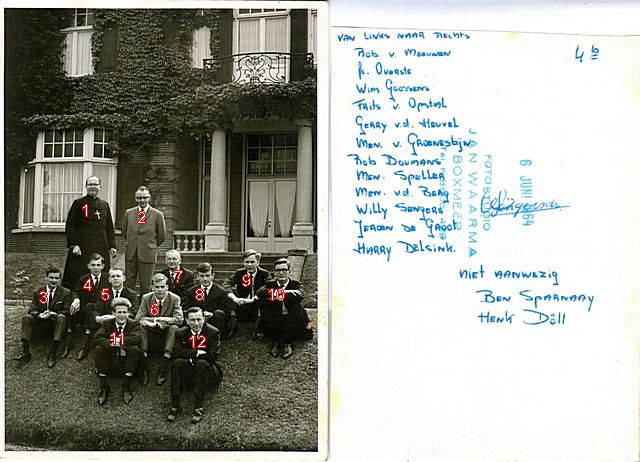 1
2
3
4
5
6
7
8
9
10
11
12
VAN LINKS NAAR RECHTS
4b
Rob v. Meeuwen
p. Overste
Wim Goossens
Frits v. Opstal
Gerry v.d. Heuvel
Men. v. Groenestijn
Rob Doumans
Men. Speller
Men. v.d. Berg
Willy Sengers
Jeroen de Groot
Harry Delsink.
niet aanwezig
Ben Sparnaay
Henk Döll
FOTOSTUDIO
JAN WAARMA
BOXMEER
6 JUNI 1964